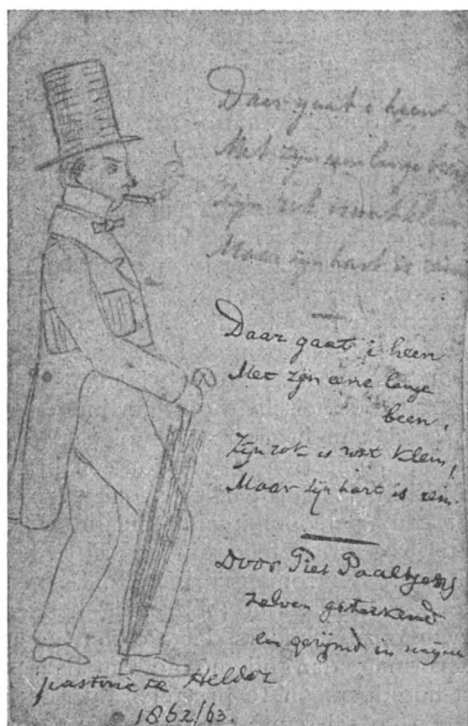 Daar gaat i heen
Met zijn eene lange been
Zijn rok is wat klein
Maar zijn hart is rein
Daar gaat i heen
Met zijn eene lange
been,
Zijn rok is wat klein,
Maar zijn hart is rein.
Door Piet Paaltjens
zelven geteekend
en gerijmd in mijne
pastorie te Helder
1862/63.